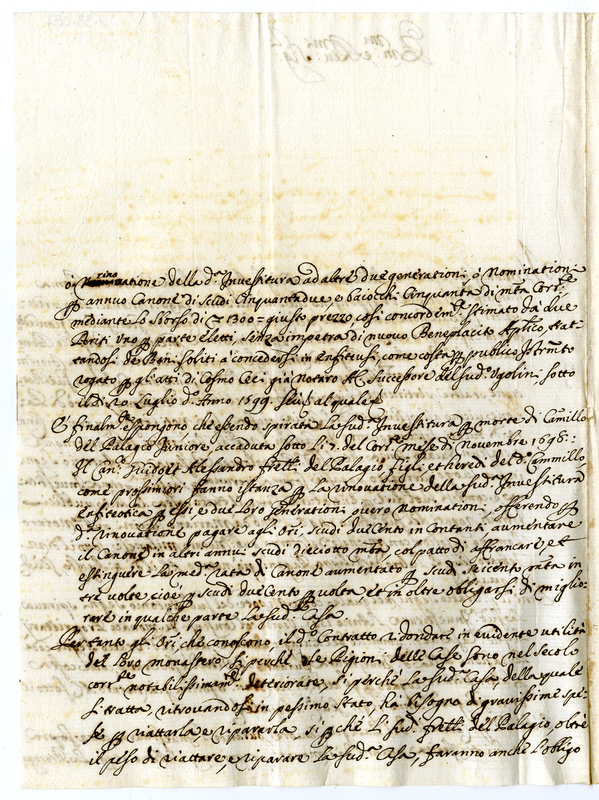 rino
ò Nominatione della d.ª Inuestitura ad altre due generationi, ò Nominationi
annuo Canone di Scudi Cinquantadue e baiocchi Cinquanta di m.ta Corr.te
mediante lo sborso di 1300 = giusto prezzo così concordem.te stimato da due
Periti Uno p parte eletti, senza impetra di nuouo Beneplacito Aplico, trat-
tandosi de Beni soliti a concedersi in enfiteusi, come costa p publico Istrum.to
rogato p gli atti di Cosmo Ceci già Notaro AC successore del sud.º Ugolini sotto
il dì 20 Luglio d.º Anno 1599. al quale
E finalm.te espongono che essendo spirata la sud.ª Inuestitura p morte di Camillo
del Palagio Juniore, accaduta sotto li 7. del Corr.te mese di Novembre 1696:
Il Can.co et Alessandro fratelli del Palagio figli, et heredi del d.º Cammillo,
come prossimiori fanno istanza p la rinouatione della sud.ª Inuestitura
Enfiteotica p essi, e due loro generationi ouero nominationi, offerendo p
d.ª rinouatione pagare agli Ori, scudi ducento in contanti aumentare
il Canone in altri annui scudi dieciotto m.ta, col patto di affrancare, et
estinguere la med.ª rata di Canone aumentato p scudi seicento m.ta in
tre volte cioè p scudi ducento p uolta, et in oltre obligarsi di miglio-
rare in qualche parte la sud.ª Casa
Per tanto gli Ori, che conoscono, il d.º Contratto ridondare in euidente utilità
del loro monastero, sì perche le Pigioni delle Case sono nel secolo
corr.te notabilissimam.te deteriorate, sì perche la sud.ª Casa, della quale
si tratta, ritrouandosi in pessimo stato, hà bisogno di grauissime spe-
se p riattarla e ripararla, sì p che li sud.i fratelli del Palagio oltre
il peso di riattare, e riparare la sud.ª Casa, faranno anche l'obligo